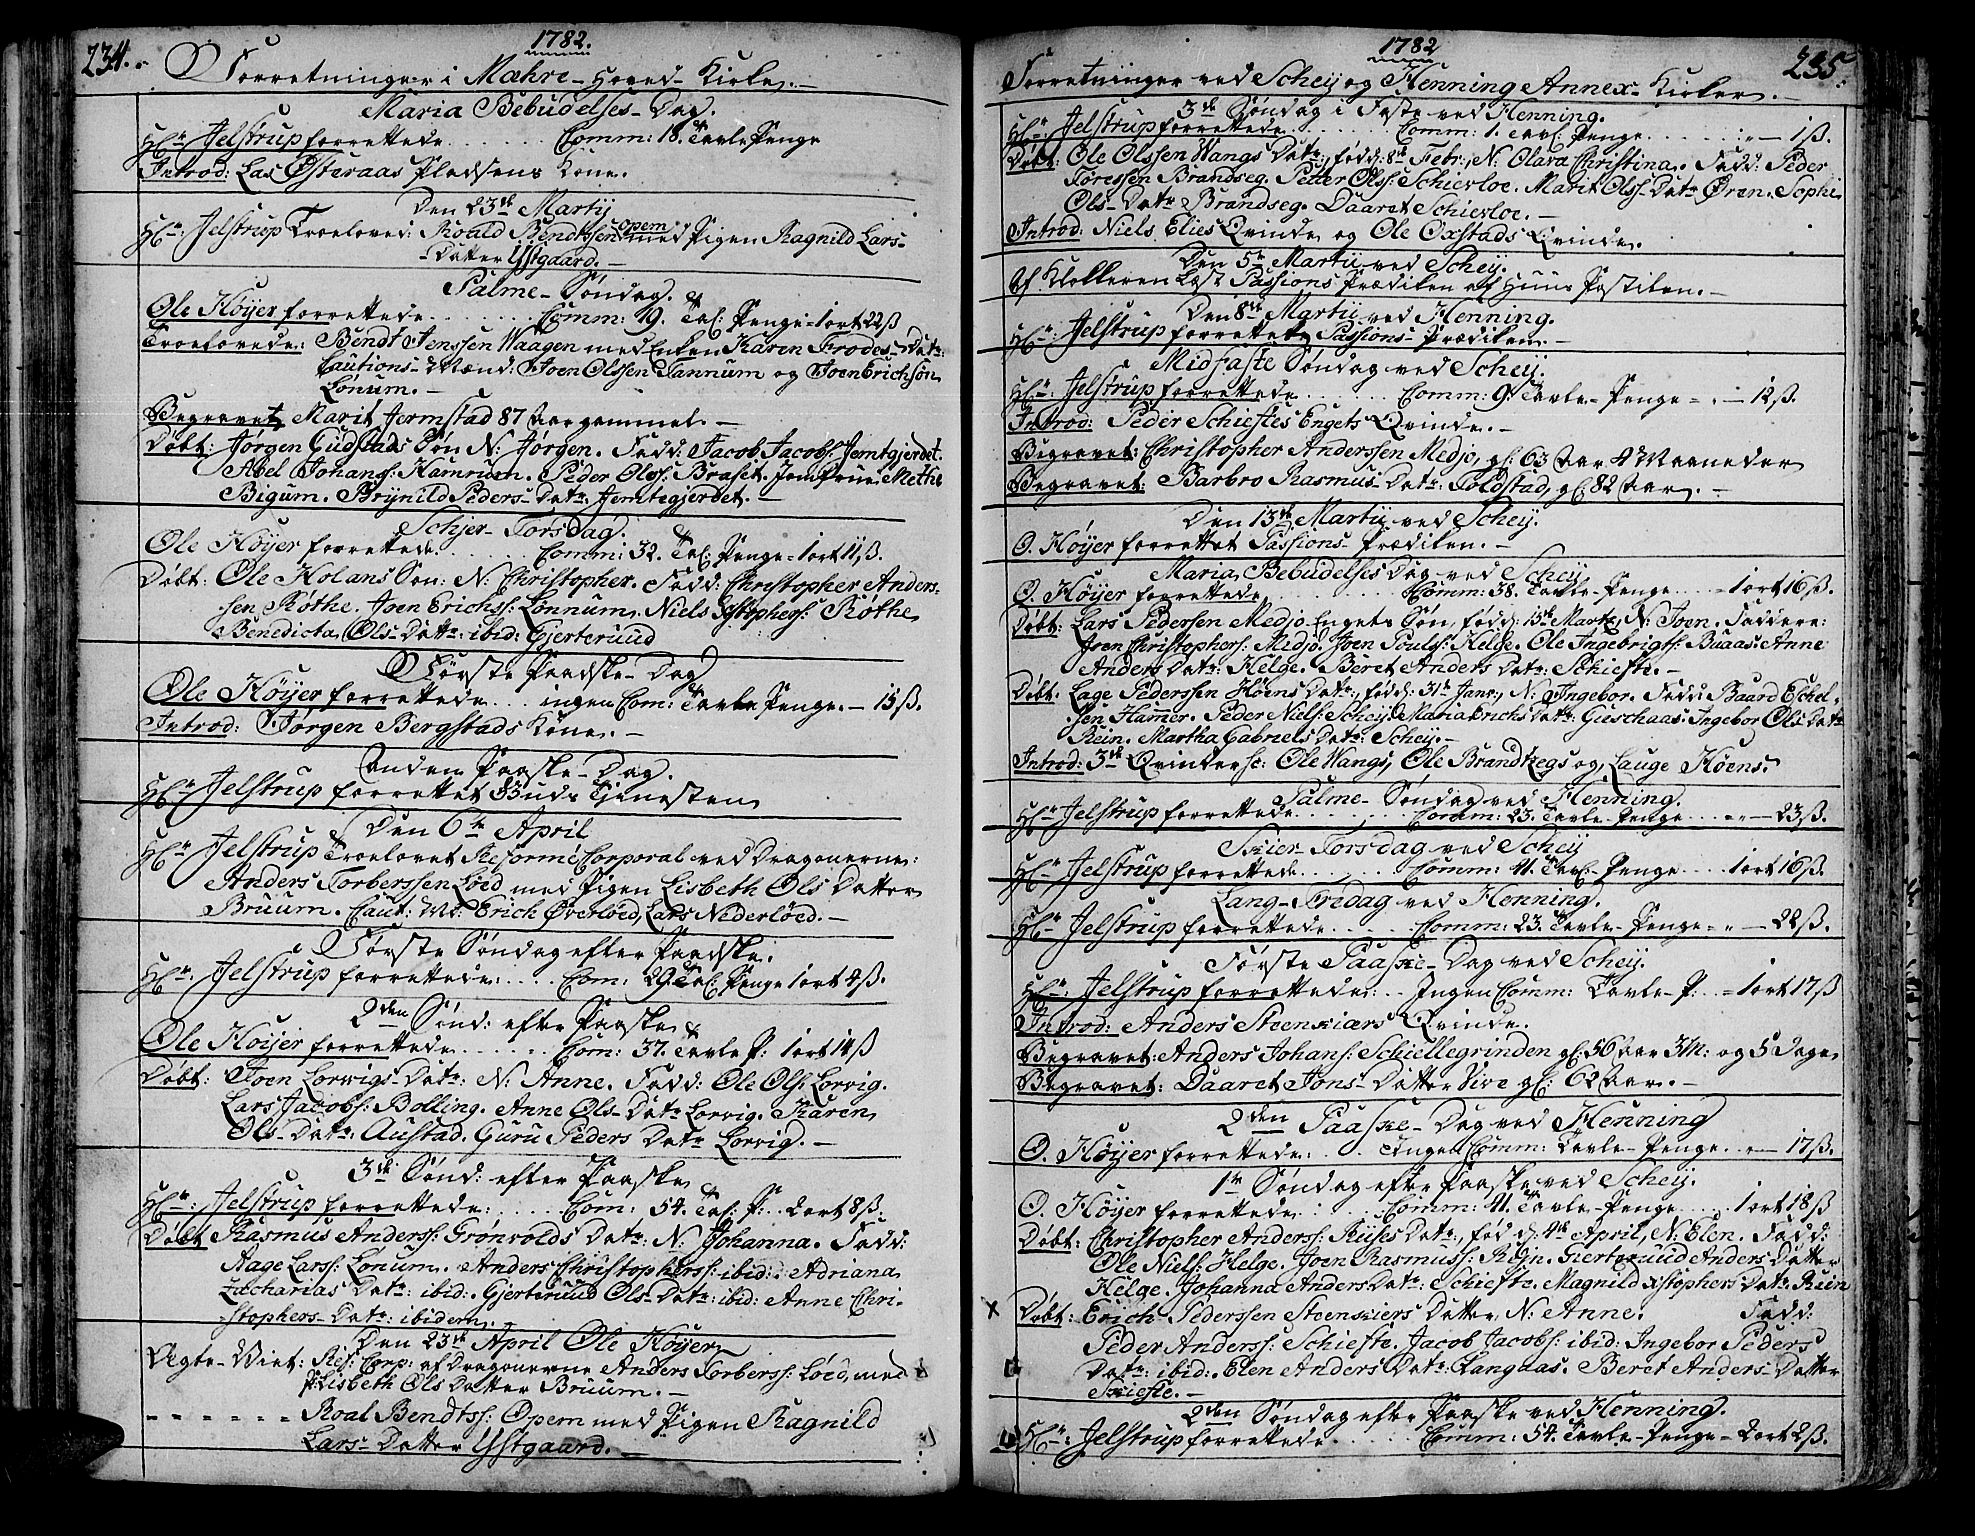 234.
1782.
Forretninger i Mæhre-Hoved-Kirke.
Maria Bebudelses-Dag.
Hr: Jelstrup forrettede ..... Comm: 18. Tavle Penge
Introd: Las Østeraas Pladsens Kone.
Den 23de Martij
Hr: Jelstrup Troeloved: Roald Bendtssen Opem med Pigen Ragnild Lars-
Datter Ystgaard.
Palme-Søndag.
Ole Høyer forrettede ..... Comm: 19. Taf: Penge = 1 ort 22 ß
Troelovede: Bendt Jenssen Waagen med Enken Karen Frodes-Datr:
Cautions-Mænd: Joen Olssen Sannum og Joen Erichsøn
Lønum.
Begravet Marit Jermstad 87 Aar gammel.
Døbt: Jørgen Gudstads Søn N: Jørgen. Fadd: Jacob Jacobs: Jemtgjerdet.
Abel Johans: Hamriigen. Peder Olss: Braset. Jomfrue Methe
Bigum. Brynild Peders-Datr Jemtegjerdet.
Schjer-Torsdag.
Ole Høyer forrettede ..... Comm: 32. Taf: Penge = 1 ort 11 ß.
Døbt: Ole Holans Søn: N: Christopher. Fadd: Christopher Anders-
sen Røthe. Joen Erichss: Lønnum, Niels Xstophers: Røthe
Benedicta Ols-Dattr: ibid: Gjerteruud
Første Paaske-Dag
Ole Høyer forrettede ... ingen Com: Tavle Penge. - 15 ß.
Introd: Jørgen Bergstads Kone.
Anden Paaske-Dag.
Hr Jelstrup forrettet Guds Tjenesten
Den 6te April
Hr Jelstrup Troelovet Reformé Corporal ved Dragonerne:
Anders Torberssen Løed med Pigen Lisbeth Ols Datter
Bruum. Caut: Md: Erich Øverløed, Lars Nederløed.
Første Søndag efter Paaske.
Hr: Jelstrup forrettede: .... Com: 29. Taf: Penge 1 ort 4 ß.
2den Sønd: efter Paaske
Ole Høyer forrettede ...... Com: 37. Tavle P: 1 ort 14 ß
Døbt: Joen Lorwigs-Datr: N: Anne. Fadd: Ole Ols: Lorvig.
Lars Jacobs: Bolling. Anne Ols-Datr Lorvig. Karen
Ols-Datr: Austad. Guru Peders Datr Lorvig.
3de Sønd: efter Paaske
Hr: Jelstrup forrettede: .... Com: 54. Taf: P: .. 2 ort 8 ß.
Døbt Rasmus Anderss: Grønvolds Datr: N: Johanna. Fadd:
Aage Larss: Lønum. Anders Christophers: ibid: Adriana
Zacharias Datr: ibid: Gjertruud Ols-Datr: ibid: Anne Chri-
stophers-Datr: ibidem.
Den 23de April Ole Høyer
Ægte-Viet: Ref: Corp: af Dragonerne Anders Torberss: Løed, med
P: Lisbeth Ols Datter Bruum.
------ Roal Bendtss: Opem med Pigen Ragnild
Lars-Datter Ystgaard.
1782
235.
Forretninger ved Scheij og Henning Annex-Kirker.
3de Søndag i Faste ved Henning.
Hr: Jelstrup forrettede ..... Comm: 1. Tavl: Penge ...... - 1 ß
Døbt: Ole Olssen Wangs Datr:, født: 8de Febr:, N: Olava Christina. Fadd: Peder
Toressen Brandseg. Petter Olss: Schierloe. Marit Olss-Datr Øren. Sophi
Ols-Datr Brandseg. Daaret Schierloe.
Introd: Niels Elies Qvinde og Ole Oxstads Qvinde.
Den 5te Martij ved Scheij.
Af Klokkeren Læst Passions Prædiken af Huus Postilen.
Den 8de Martij ved Henning.
Hr: Jelstrup forrettet Passions-Prædiken.
Midfaste Søndag ved Scheij.
Hr: Jelstrup forrettede ...... Comm: 9. Tavle-Penge = - 12 ß.
Introd: Peder Schieftes Engets Qvinde.
Begravet: Christopher Anderssen Medjo, gl: 63 Aar 4 Maaneder
Begravet: Barbro Rasmus-Datr: Foldstad, gl: 82 Aar.
Den 13de Martij ved Scheij.
O. Høyer forrettet Passions-Prædiken.
Maria Bebudelses Dag ved Scheij
O. Høyer forrettede ........ Comm: 38. Tavle-Penge .... = 1 ort 16 ß.
Døbt: Lars Pedersen Medjo-Engets Søn, født: 15de Martij, N: Joen. Faddere:
Joen Christophers: Medjo. Joen Pouls: Helge. Ole Ingebrigts: Buaas. Anne
Anders Datr: Helge. Beret Anders Datr: Schiefte.
Døbt: Lage Pederssen Høens Datr:, født: 31te Janr:, N: Ingebor. Fadd: Baard Echel-
sen Hammer. Peder Niels: Scheij. Maria Erichs Datr: Guschaas. Ingebor Ols Datr
Rein. Martha Gabriels Datr: Scheij.
Introd: 3de Qvinder se: Ole Wangs, Ole Brandhegs og Lauge Høens.
Palme-Søndag ved Henning.
Hr Jelstrup forrettede ....... Comm: 23. Tavle-Penge ... = - 23 ß.
Skier-Torsdag ved Scheij
Hr Jelstrup forrettede ...... Comm: 41. Tavl:-Penge .... 1 ort 16 ß.
Lang-Fredag ved Henning.
Hr Jelstrup forrettede ..... Comm: 23. Tavle-Penge = - 22 ß.
Første Paaske-Dag ved Scheij.
Hr: Jelstrup forrettede: .. Ingen Comm: Tavle-P: .. = 1 ort 17 ß
Introd: Anders Steenkiærs Qvinde.
Begravet: Anders Johans: Schiellegrinden gl: 56 Aar 3 M: og 5 Dage
Begravet: Daaret Jons-Datter Vive gl: 62 Aar.
2den Paaske-Dag ved Henning
O. Høyer forrettede: ... Ingen Comm: Tavle-Penge .. - 17 ß.
1te Søndag efter Paaske ved Scheij.
O. Høyer forrettede ..... Comm: 41. Tavle-Penge ..... 1 ort 18 ß
Døbt: Christopher Anders: Riises Datr:, fød d: 4de April, N: Elen. Fadd:
Ole Niels: Helge. Joen Rasmuss: Reijn. Gierteruud Anders Datter
Helge. Johanna Anders Datr: Schiefte. Magnild Xstophers Datr: Rein
X Døbt: Erich Pederssen Steenkiers Datter N: Anne. Fadd:
Peder Anderss: Schiefte. Jacob Jacobs: ibid: Ingebor Peders
Datr: ibid: Elen Anders Datr: Langaas. Beret Anders-Datter
Skiefte.
2den Søndag efter Paaske ved Henning.
Hr: Jelstrup forrettede ...... Comm: 54. Tavle-Penge - 2 ort 2 ß.